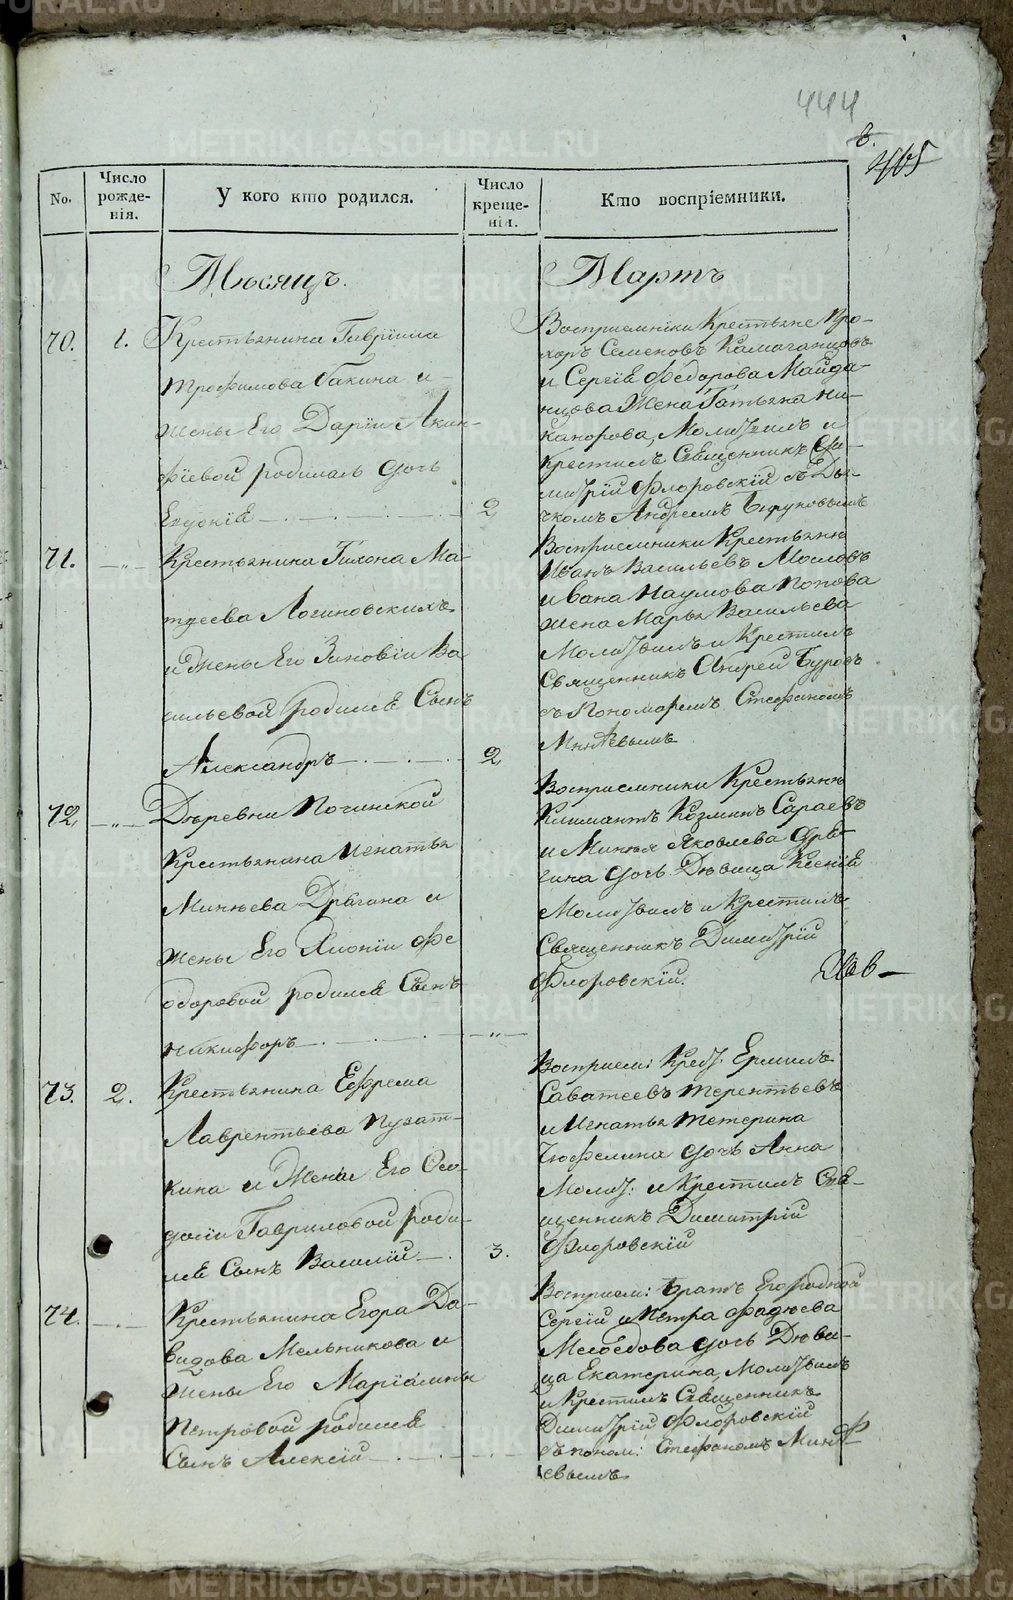 444
в.
465
No.
Число рожде-нія.
У кого кто родился.
Число креще-нія.
Кто воспріемники.
Мѣсяцъ.
Мартъ
70.
1.
Крестьянина Гавріила
Трофимова Бакина и
жены Его Даріи Акин-
фіевой родилась дочь
Евдокія
2
Восприемники Крестьяне Про-
хоръ Семеновъ
и Сергія Федорова Майда-
нцова Жена Татьяна Ни-
канорова, Молитвилъ и
Крестилъ Священникъ Ди-
митрій Флоровскій съ Дья-
чкомъ Андреемъ
71.
Крестьянина Тихона Ма-
тфеева Логиновскихъ
и Жены Его Зиновіи Ва
сильевой родился Сынъ
Александръ
2
Восприемники Крестьяне
Иванъ Васильевъ Масловъ
и Вана Наумова Попова
жена Марья Васильева
Молитвилъ и Крестилъ
Священникъ Андрей Буровъ
съ Пономаремъ Стефаномъ
Минѣевымъ
72.
Деревни Починской
Крестьянина Игнатья
Минѣева Дрягина и
жены Его Хионіи Фе
одоровой родился Сынъ
Никифоръ
Восприемники Крестьяне
Климантъ Козминъ Сараевъ
и Минѣя Яковлева Дря-
гина дочь Дѣвица Ксенія
Молитвилъ и Крестилъ
Священникъ Димитрій
Флоровскій.
73.
2.
Крестьянина Ефрема
Лаврентьева Пузат-
кина и Жены Его Фео-
досіи Гавриловой роди-
лся Сынъ Василій
3.
Восприем: Крест. Ермилъ
Саватеевъ Терентьевъ
и Игнатья Тетерина
дочь Анна
Молит: и Крестилъ Свя-
щенникъ Димитрій
Флоровскій
74.
Крестьянина Егора Да-
видова Мельникова и
жены Его Маріамны
Петровой родился
Сынъ Алексій
Восприем: братъ Его родной
Сергій и Петра Фадѣева
Мелоедова дочь Дѣви-
ца Екатерина, Молитвилъ
и Крестилъ Священникъ
Димитрій Флоровскій
съ поном: Стефаномъ Минѣ
евымъ
METRIKI.GASO-URAL.RU